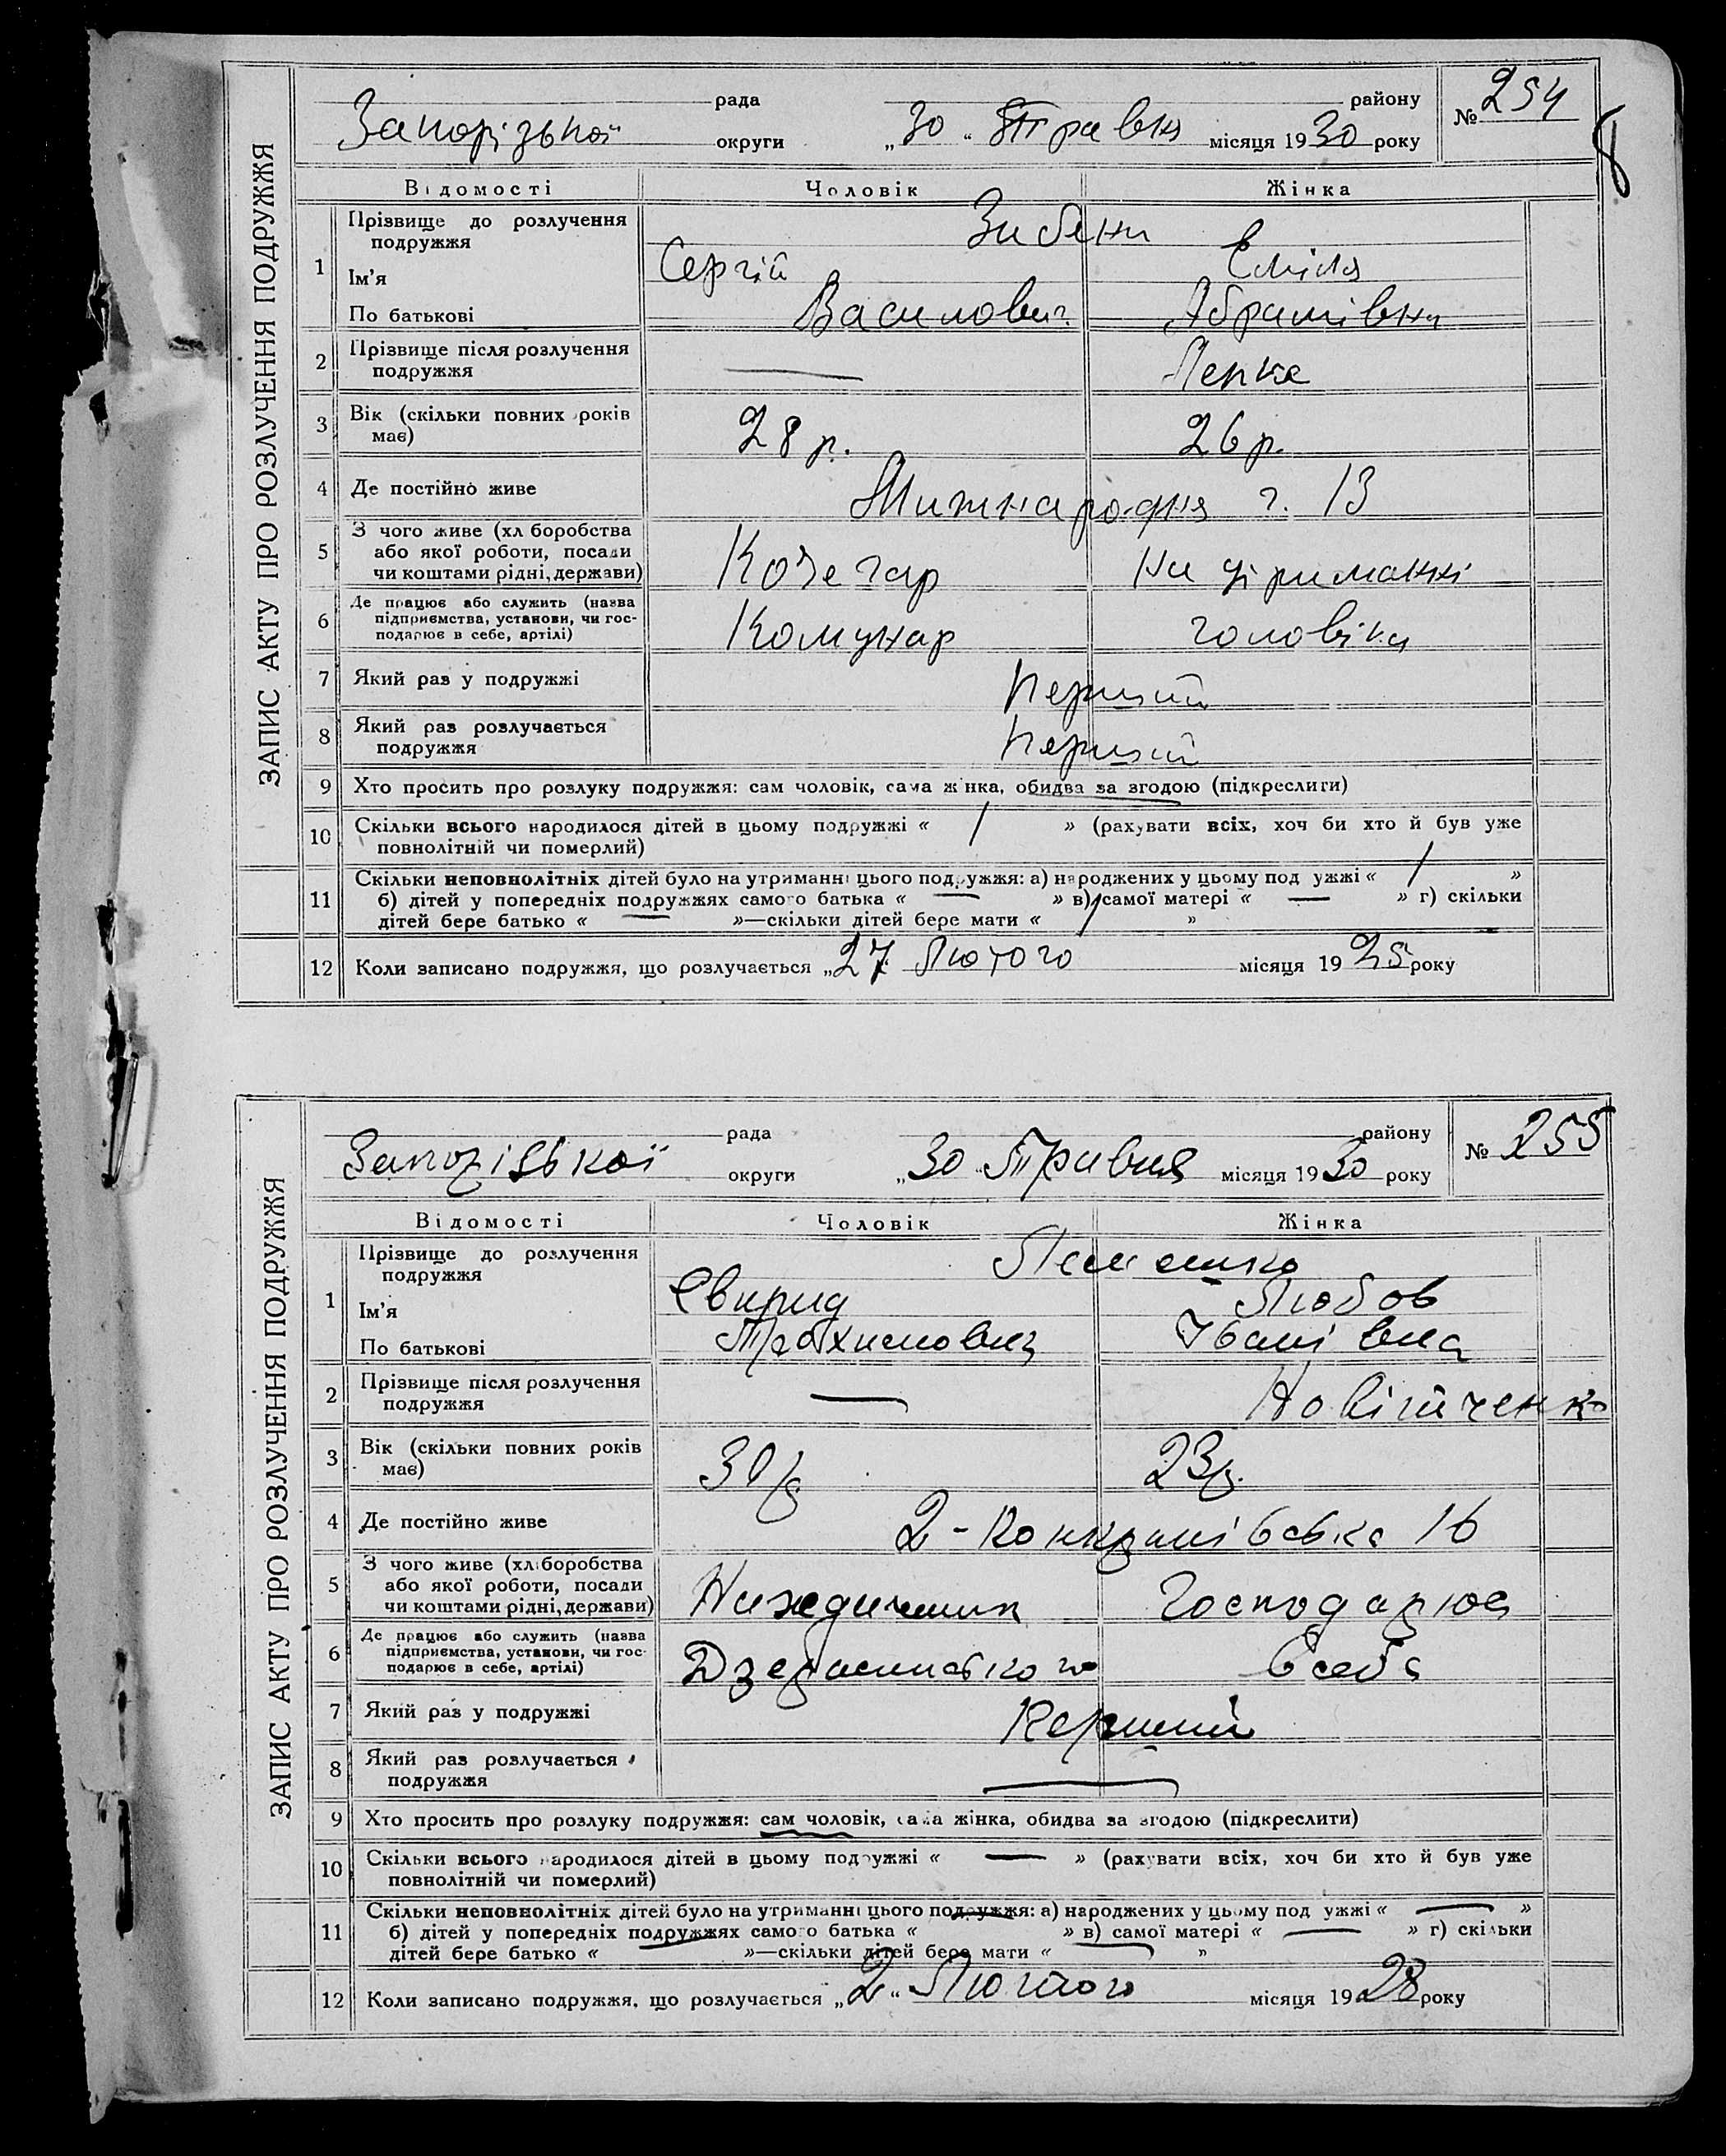 ЗАПИС АКТУ ПРО РОЗЛУЧЕННЯ ПОДРУЖЖЯ
рада району № 254
8
Запорізької округи „30“ Травня місяця 1930 року
Відомості Чоловік Жінка
1 Прізвище до розлучення подружжя
Ім'я Сергій Еміля
По батькові Василович Абрамівна
2 Прізвище після розлучення подружжя — Лепке
3 Вік (скільки повних років має) 28 р. 26 р.
4 Де постійно живе Мижнародня 13
5 З чого живе (хліборобства або якої роботи, посади чи коштами рідні, держави) Кочегар На утриманні
6 Де працює або служить (назва підприємства, установи, чи господарює в себе, артілі) Комунар чоловіка
7 Який раз у подружжі Перший
8 Який раз розлучається подружжя Перший
9 Хто просить про розлуку подружжя: сам чоловік, сама жінка, обидва за згодою (підкреслити)
10 Скільки всього народилося дітей в цьому подружжі « / » (рахувати всіх, хоч би хто й був уже
повнолітній чи померлий)
11 Скільки неповнолітніх дітей було на утриманні цього подружжя: а) народжених у цьому подружжі « / »
б) дітей у попередніх подружжях самого батька « — » в) самої матері « — » г) скільки
дітей бере батько « — »—скільки дітей бере мати « / »
12 Коли записано подружжя, що розлучається „27 Лютого місяця 1925 року
ЗАПИС АКТУ ПРО РОЗЛУЧЕННЯ ПОДРУЖЖЯ
рада району № 255
Запорізької округи „30“ Травня місяця 1930 року
Відомості Чоловік Жінка
1 Прізвище до розлучення подружжя
Ім'я Свирид Любов
По батькові Трохимович Іванівна
2 Прізвище після розлучення подружжя —
3 Вік (скільки повних років має) 23р.
4 Де постійно живе 2- 16
5 З чого живе (хліборобства або якої роботи, посади чи коштами рідні, держави) Господарює
6 Де працює або служить (назва підприємства, установи, чи господарює в себе, артілі) Дзержинського в себе
7 Який раз у подружжі Перший
8 Який раз розлучається подружжя —
9 Хто просить про розлуку подружжя: сам чоловік, сама жінка, обидва за згодою (підкреслити)
10 Скільки всього народилося дітей в цьому подружжі « — » (рахувати всіх, хоч би хто й був уже
повнолітній чи померлий)
11 Скільки неповнолітніх дітей було на утриманні цього подружжя: а) народжених у цьому подружжі « — »
б) дітей у попередніх подружжях самого батька « » в) самої матері « — » г) скільки
дітей бере батько « »—скільки дітей бере мати « »
12 Коли записано подружжя, що розлучається „2“ Лютого місяця 1928 року